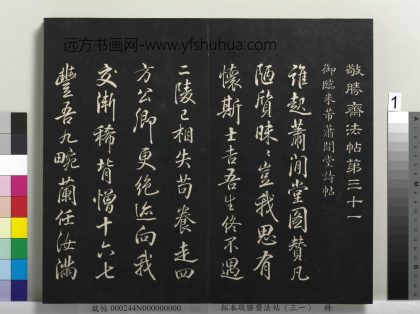 远方书画网-www.yfshuhua.com
敬勝齋法帖第三十一
御臨米芾蕭閒堂詩帖
誰起蕭閒堂圖贊凡
陋質昧〻豈我思有
懷斯士吉吾生終不遇
二陵已相失苟養走四
方公卿更絕迹向我
交漸稀背憎十六七
豐吾九畹蘭任汝滿
1
故帖 000244N000000000 拓本敬勝齋法帖(三一) 冊